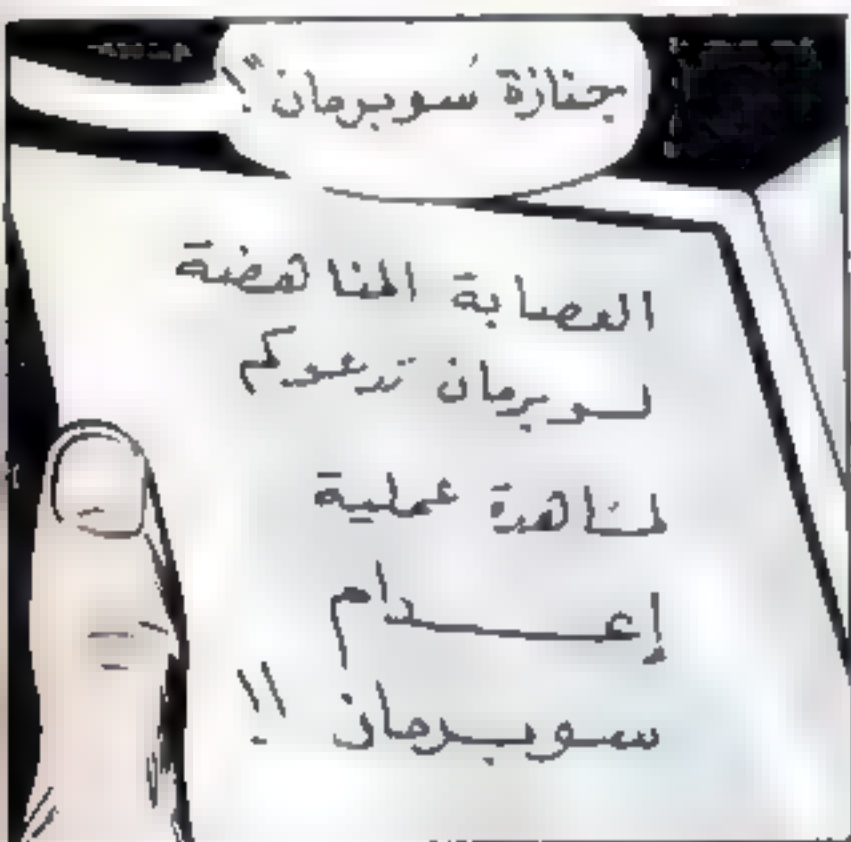 جنازة "سوبرمان"!
العصابة المناهضة
لسوبرمان تدعوكم
لمشاهدة عملية
إعدام
سوبرمان !!